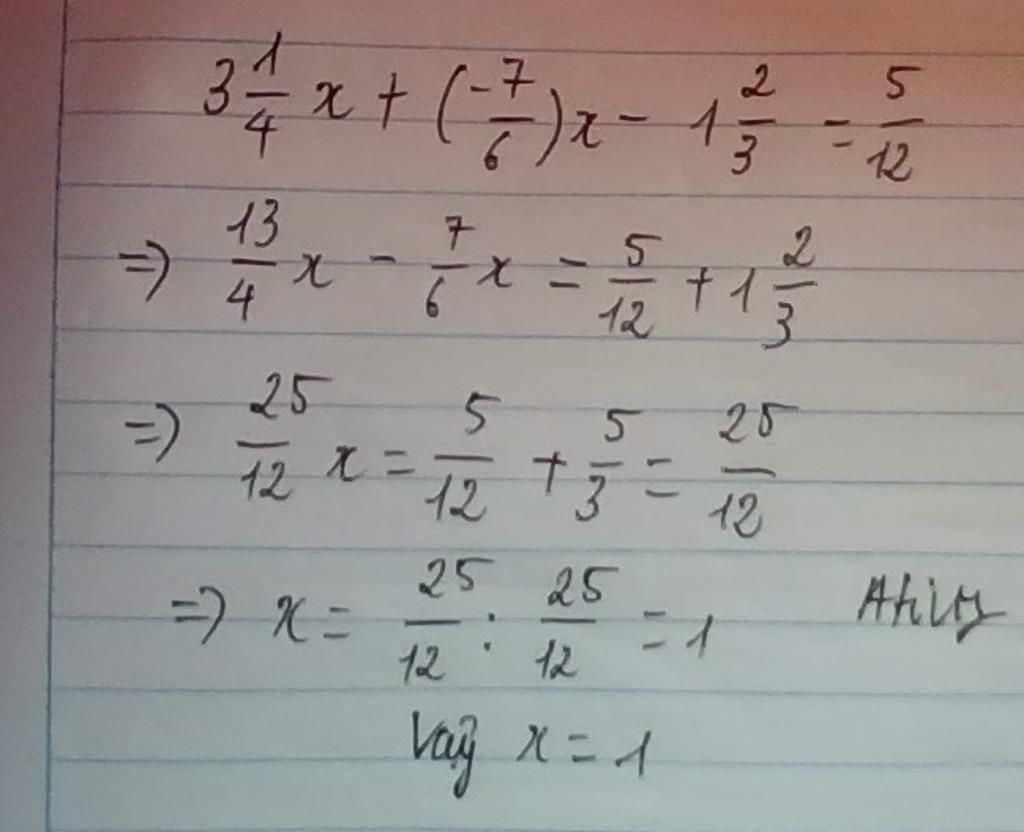 3 1/4 x + (-7/6)x - 1 2/3 = 5/12
=> 13/4 x - 7/6 x = 5/12 + 1 2/3
=> 25/12 x = 5/12 + 5/3 = 25/12
=> x = 25/12 : 25/12 = 1
Vậy x = 1